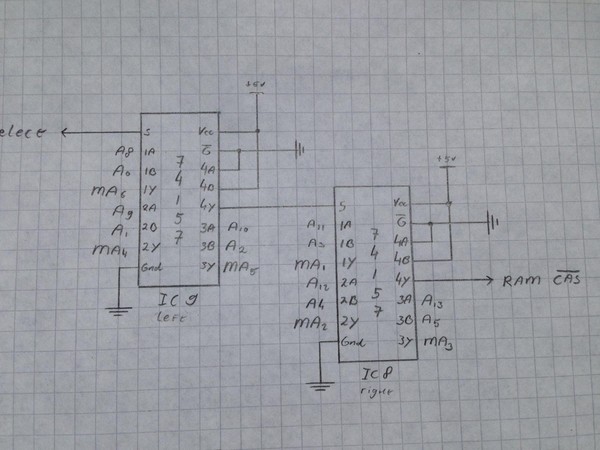 +5v
elect
S Vcc
A8 1A G̅
A0 1B 7 4A
MA6 1Y 4 4B
A9 2A 1 4Y
A1 2B 5 3A A10
MA4 2Y 7 3B A2
Gnd 3Y MA5
IC 9
left
+5v
S Vcc
A11 1A 7 G̅
1B 4 4A
MA1 1Y 4B
A12 2A 1 4Y RAM C̅A̅S̅
A4 2B 5 3A A13
MA2 2Y 7 3B A5
Gnd 3Y MA3
IC 8
right